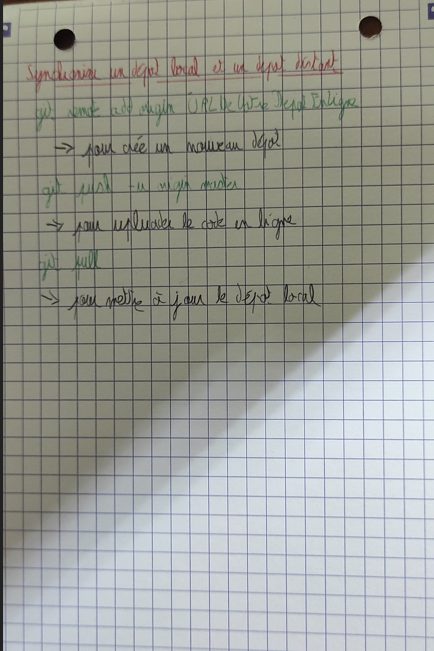 Synchroniser un dépot local et un dépot distant
git remote add origin URLDeVotreDepotEnligne
→ pour crée un nouveau dépot
git push -u origin master
→ pour uploader le code en ligne
git pull
→ pour mettre à jour le dépot local